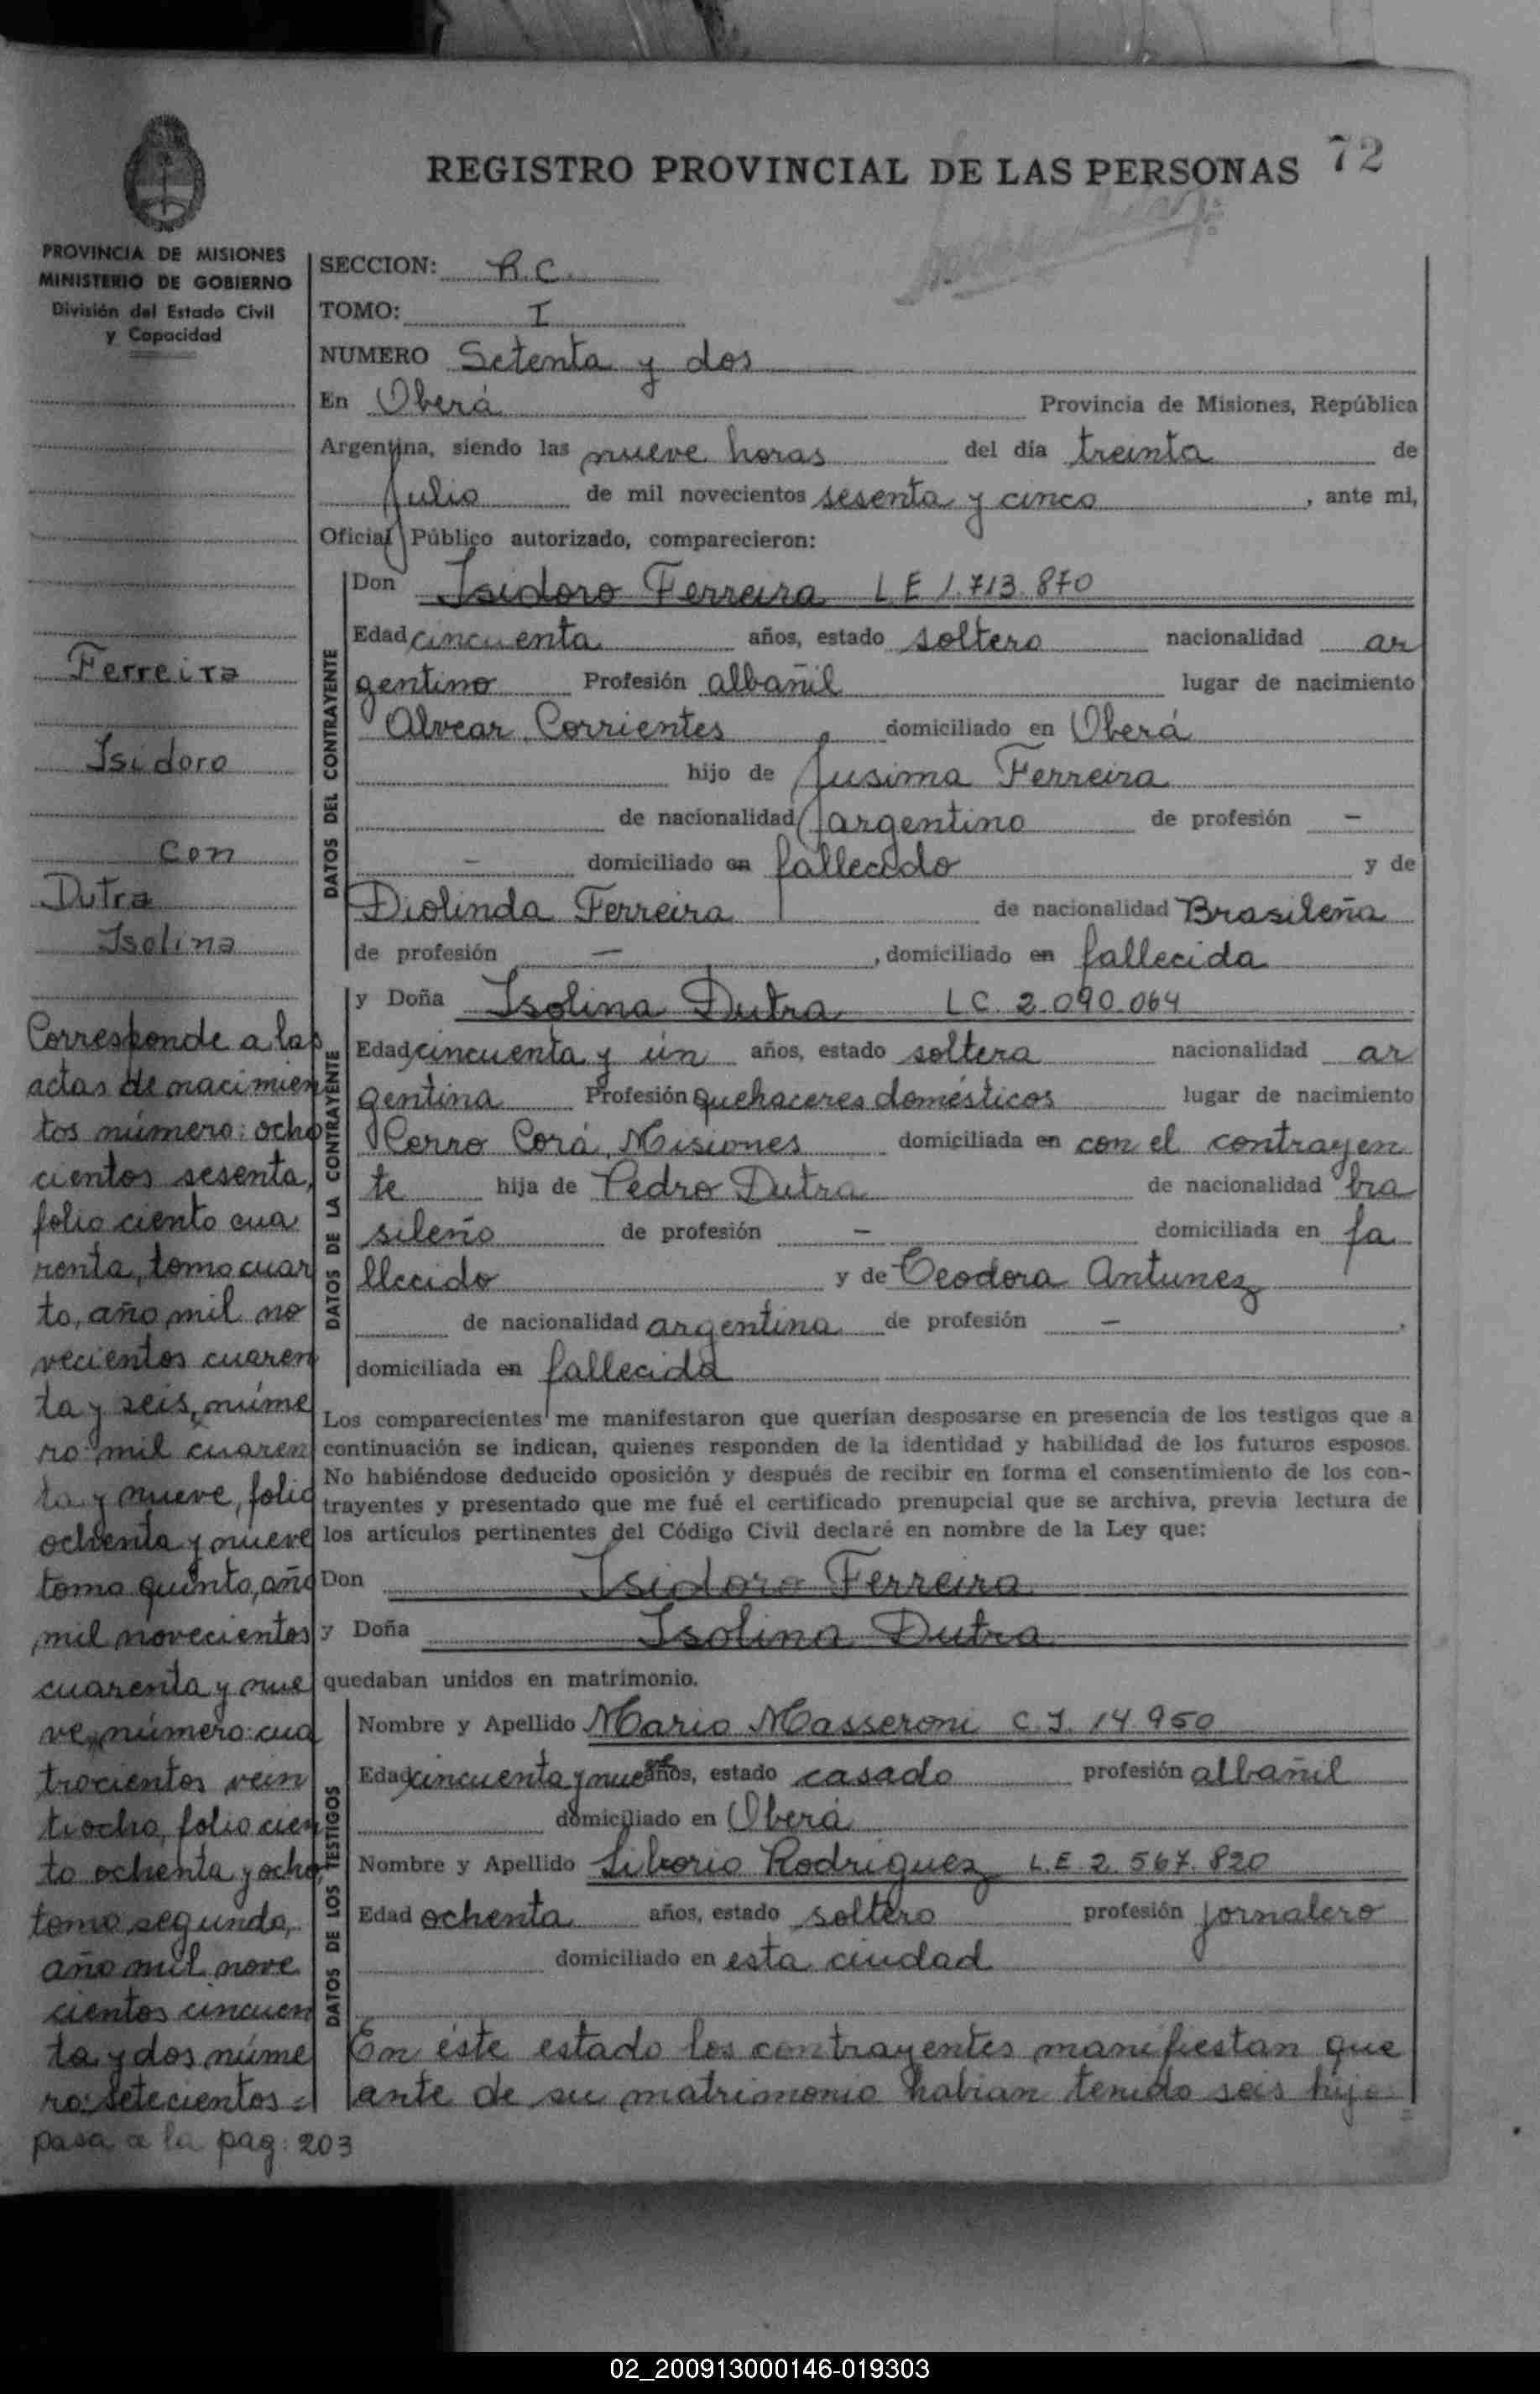 REGISTRO PROVINCIAL DE LAS PERSONAS 72
PROVINCIA DE MISIONES
MINISTERIO DE GOBIERNO
División del Estado Civil
y Capacidad
Ferreira
Isidoro
con
Dutra
Isolina
Corresponde a las
actas de nacimien
tos número: ocho
cientos sesenta,
folio ciento cua
renta, tomo cuar
to, año mil no
vecientos cuaren
ta y seis, núme
ro mil cuaren
ta y nueve, folio
ochenta y nueve
tomo quinto, año
mil novecientos
cuarenta y nue
ve, número: cua
trocientos vein
tiocho, folio cien
to ochenta y ocho,
tomo segundo,
año mil nove
cientos cincuen
ta y dos núme
ro: setecientos =
pasa a la pag: 203
SECCION: R.C.
TOMO: I
NUMERO Setenta y dos
En Oberá Provincia de Misiones, República
Argentina, siendo las nueve horas del día treinta de
Julio de mil novecientos sesenta y cinco, ante mi,
Oficial Público autorizado, comparecieron:
DATOS DEL CONTRAYENTE
Don Isidoro Ferreira L E 1.713.870
Edad cincuenta años, estado soltero nacionalidad ar
gentino Profesión albañil lugar de nacimiento
Alvear, Corrientes domiciliado en Oberá
hijo de Jusima Ferreira
de nacionalidad argentino de profesión —
— domiciliado en fallecido y de
Diolinda Ferreira de nacionalidad Brasileña
de profesión —, domiciliado en fallecida
DATOS DE LA CONTRAYENTE
y Doña Isolina Dutra L C. 2.090.064
Edad cincuenta y un años, estado soltera nacionalidad ar
gentina Profesión quehaceres domésticos lugar de nacimiento
Cerro Corá, Misiones domiciliada en con el contrayen
te hija de Pedro Dutra de nacionalidad bra
sileño de profesión — domiciliada en fa
llecido y de Teodora Antunez
de nacionalidad argentina de profesión —,
domiciliada en fallecida
Los comparecientes me manifestaron que querían desposarse en presencia de los testigos que a
continuación se indican, quienes responden de la identidad y habilidad de los futuros esposos.
No habiéndose deducido oposición y después de recibir en forma el consentimiento de los con-
trayentes y presentado que me fué el certificado prenupcial que se archiva, previa lectura de
los artículos pertinentes del Código Civil declaré en nombre de la Ley que:
Don Isidoro Ferreira
y Doña Isolina Dutra
quedaban unidos en matrimonio.
DATOS DE LOS TESTIGOS
Nombre y Apellido Mario Masseroni C.I. 14.950
Edad cincuenta y nueve años, estado casado profesión albañil
domiciliado en Oberá
Nombre y Apellido Liborio Rodriguez L.E. 2.567.820
Edad ochenta años, estado soltero profesión jornalero
domiciliado en esta ciudad
En éste estado los contrayentes manifiestan que
ante de su matrimonio habian tenido seis hijos =
02_200913000146-019303